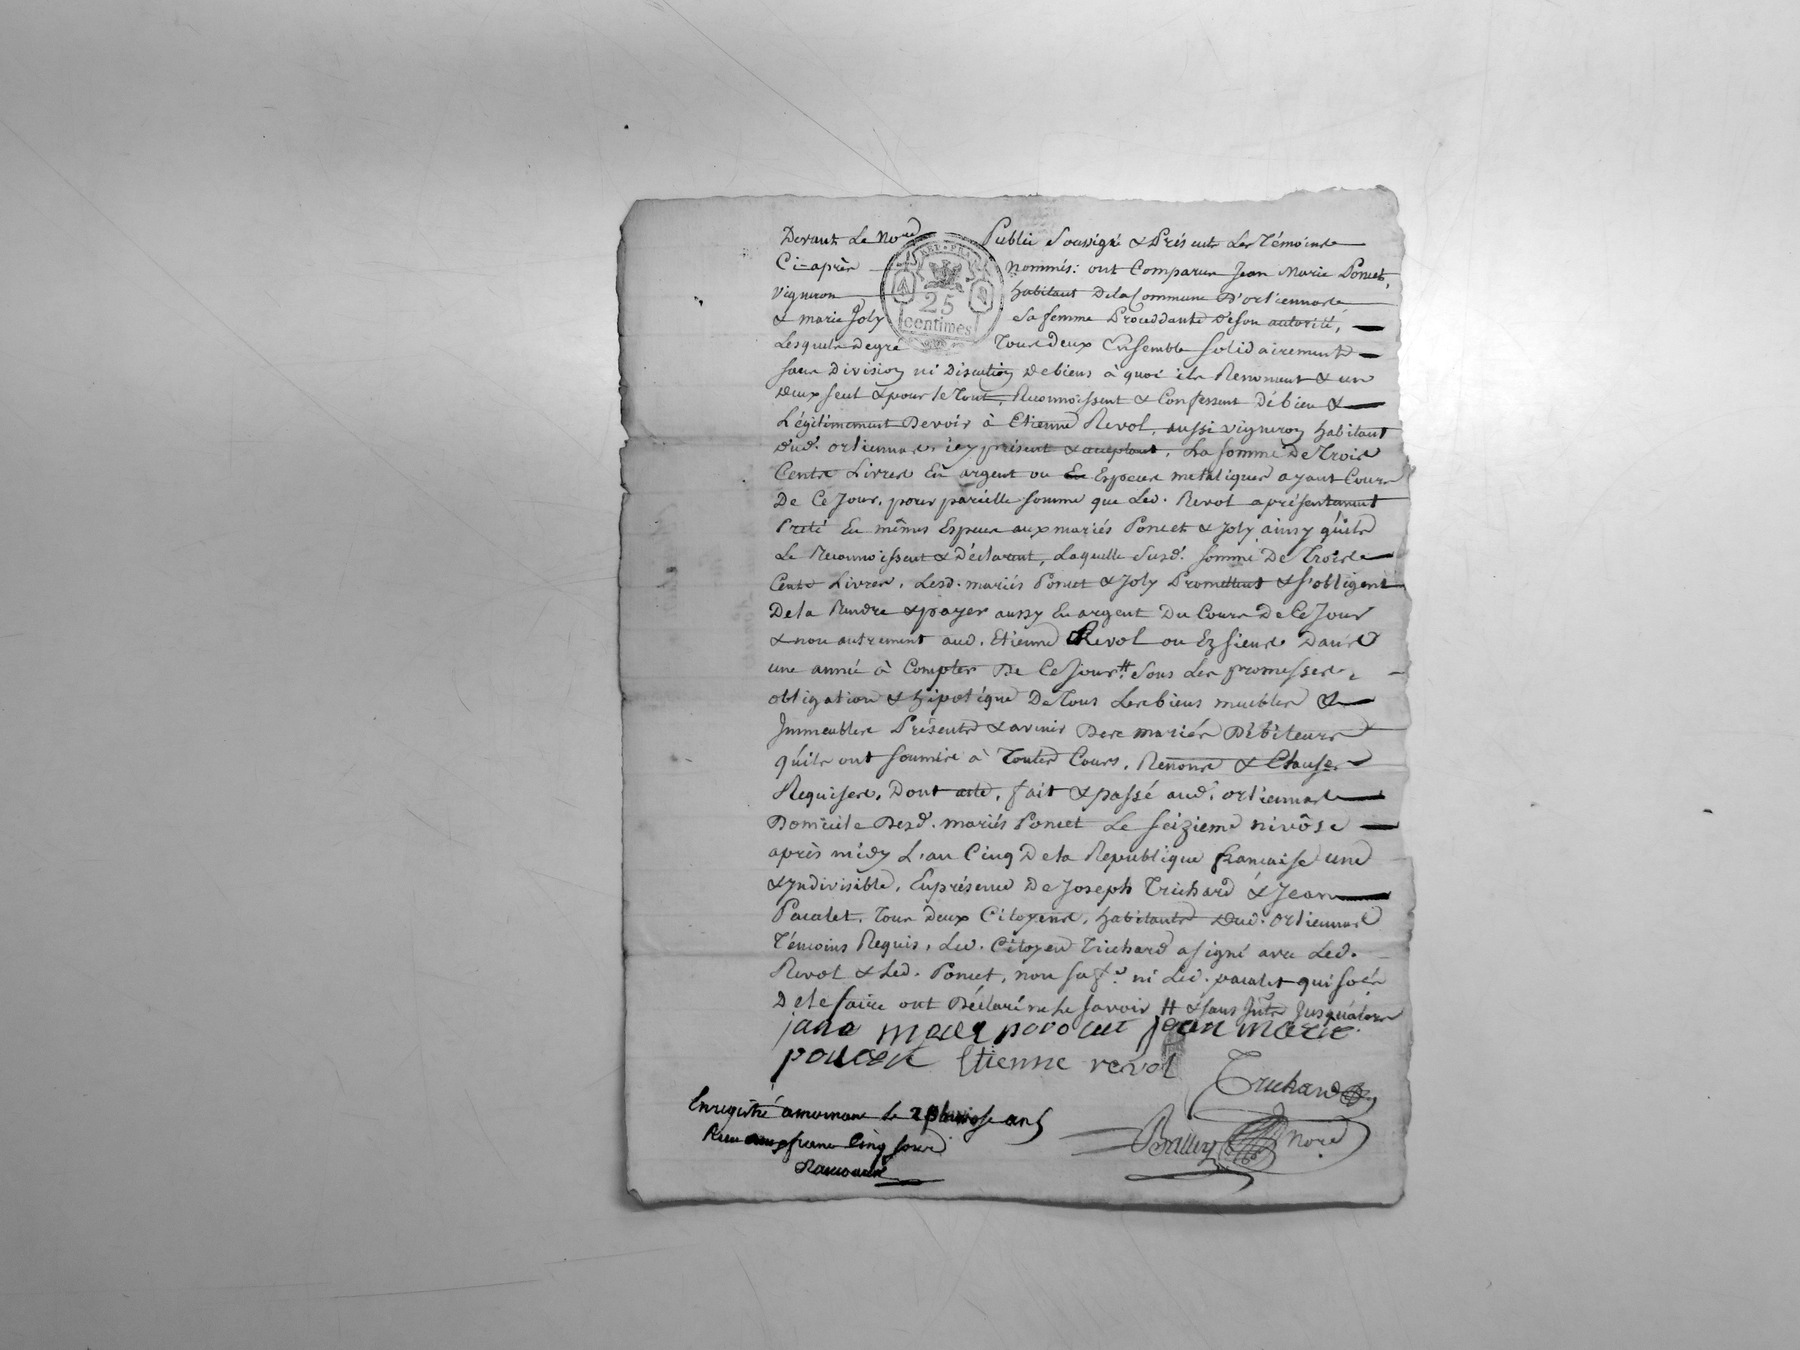 Devant Le No.re Public Soussigné & Présents Les Témoins
Ci-après nommés: ont Comparu Jean Marie Poncet,
vigneron habitant De la Commune D'orliennas
& marie Joly sa femme Proceddante De son autorité,
Lesquels De gré Tous deux Ensemble solidairement
sans Division ni Discution De biens à quoi ils Renoncent & un
deux seul & pour le Tout, Reconnoissent & Confessent Débien &
Légitimement Devoir à Etienne Revol, aussi vigneron habitant
dud. orliennas icy présent & acceptant, La somme De Trois
Cents Livres En argent ou En Especes metaliques ayant Cours
De Ce Jour, pour pareille somme que Led. Revol a présentement
Preté En mêmes Especes aux mariés Poncet & Joly ainsy qu'ils
Le Reconnoissent & Déclarent, Laquelle susd. somme De Trois
Cents Livres, Lesd. mariés Poncet & Joly Promettent & s'obligent
De la Rendre & payer aussy En argent Du Cours De Ce Jour
& non autrement aud. Etienne Revol ou Ez siens Dans
une année à Compter De Ce Jour H Sous Les promesses,
obligation & hipotéque De Tous Les biens meubles &
Immeubles Présents & avenir Desd mariés Débiteurs
qu'ils ont soumis à Toutes Cours, Renonce & Clauses
Requises, Dont acte, fait & passé aud. orliennas
Domicile Desd. mariés Poncet Le seizieme nivôse
après midy L'an Cinq De la Republique francaise une
& yndivisible, En présence De Joseph Trichard & Jean
Pacalet, Tous Deux Citoyens, habitants dud. orliennas
Témoins Requis, Led. Citoyen Trichard a signé avec Led.
Revol & Led. Poncet, non sa f.e ni Led. pacalet qui
De le faire ont Déclaré ne le savoir H & sans Jusqu'alors
jean marie
poncet Etienne revol
Trichard
Enregistré a mornant le 2 pluviose an 5
Recu franc Cinq sous
No.re
25
centimes